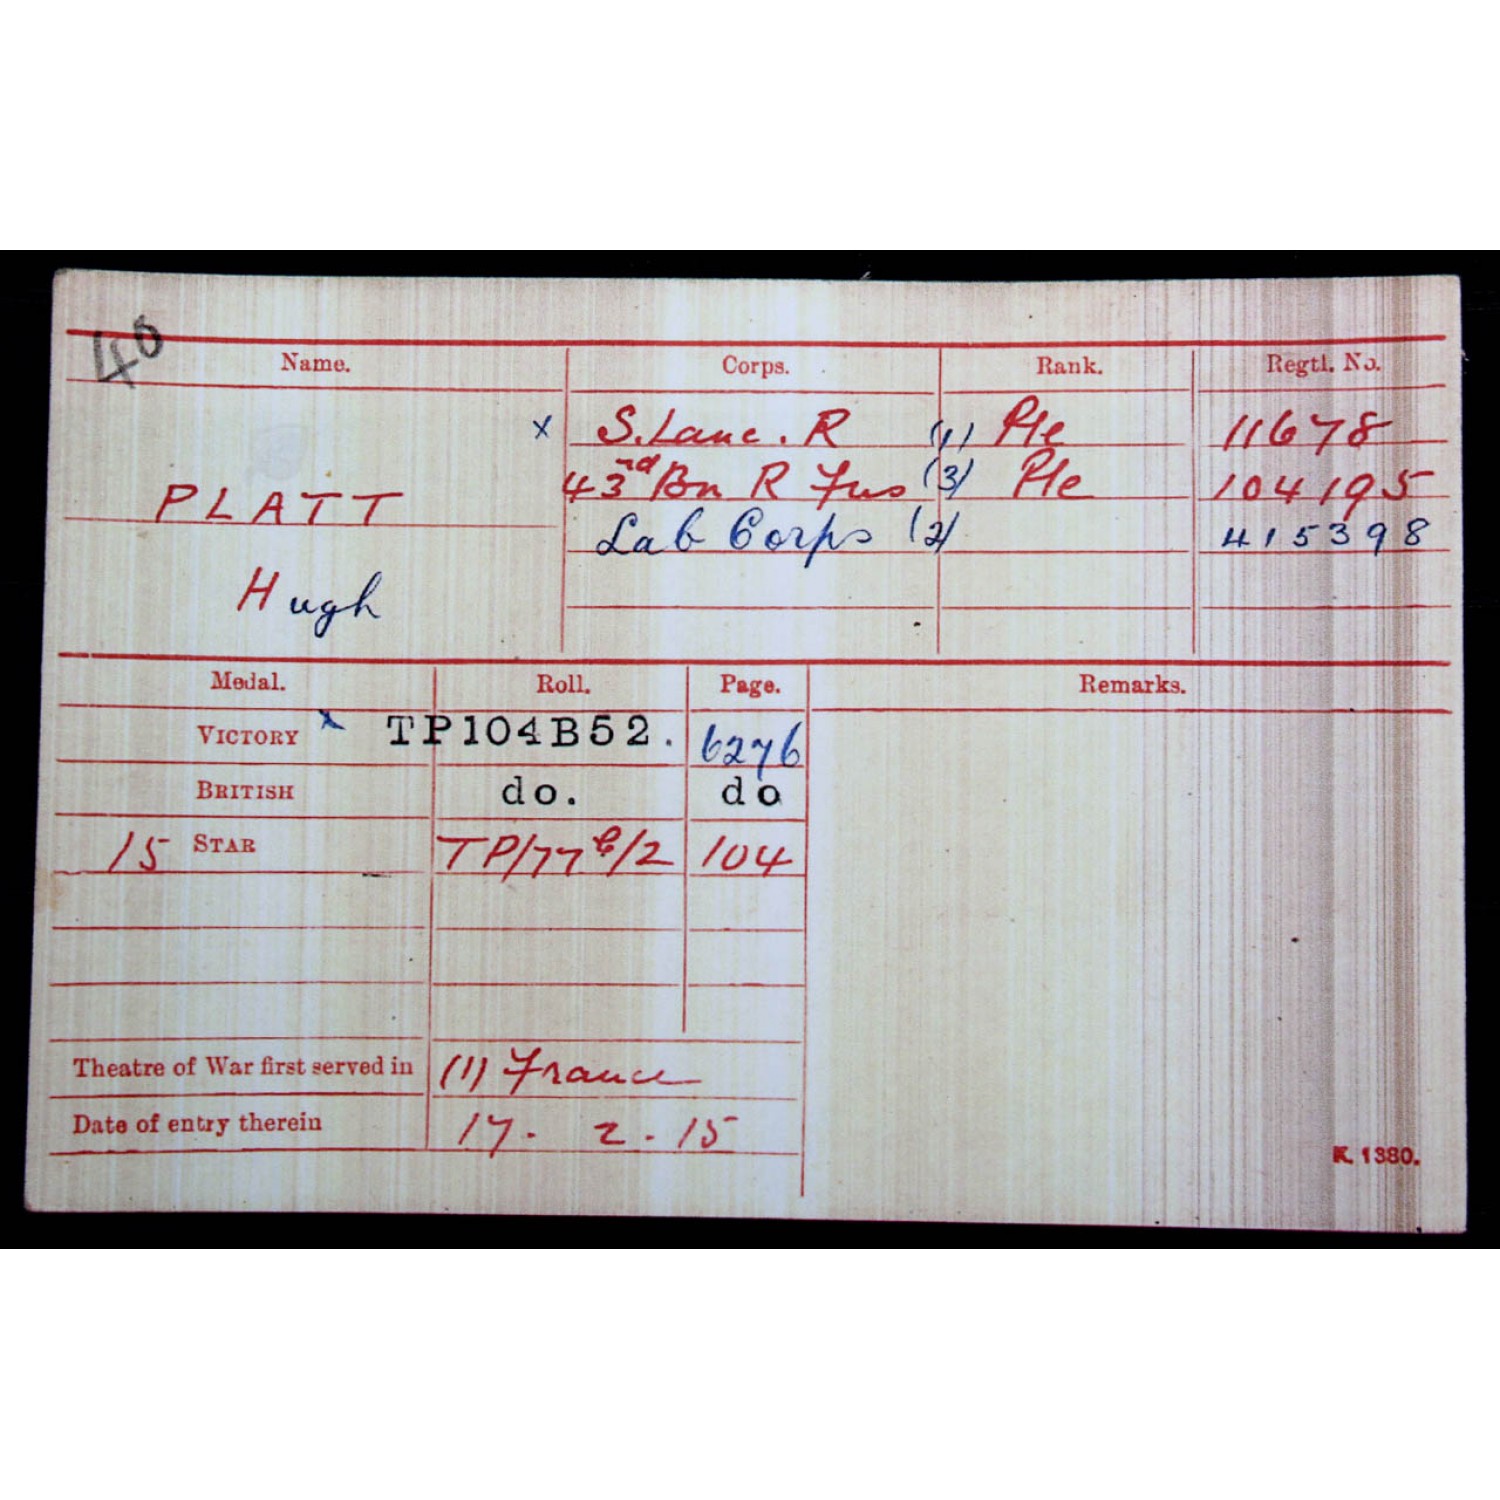 40
Name. Corps. Rank. Regtl. No.
x S. Lanc. R (1) Pte 11678
43rd Bn R Fus (3) Pte 104195
PLATT
Lab Corps (2) 415398
Hugh
Medal. Roll. Page. Remarks.
VICTORY x TP104B52. 6276
BRITISH do. do
15 STAR TP/77 B/2 104
Theatre of War first served in (1) France
Date of entry therein 17. 2. 15
K. 1380.